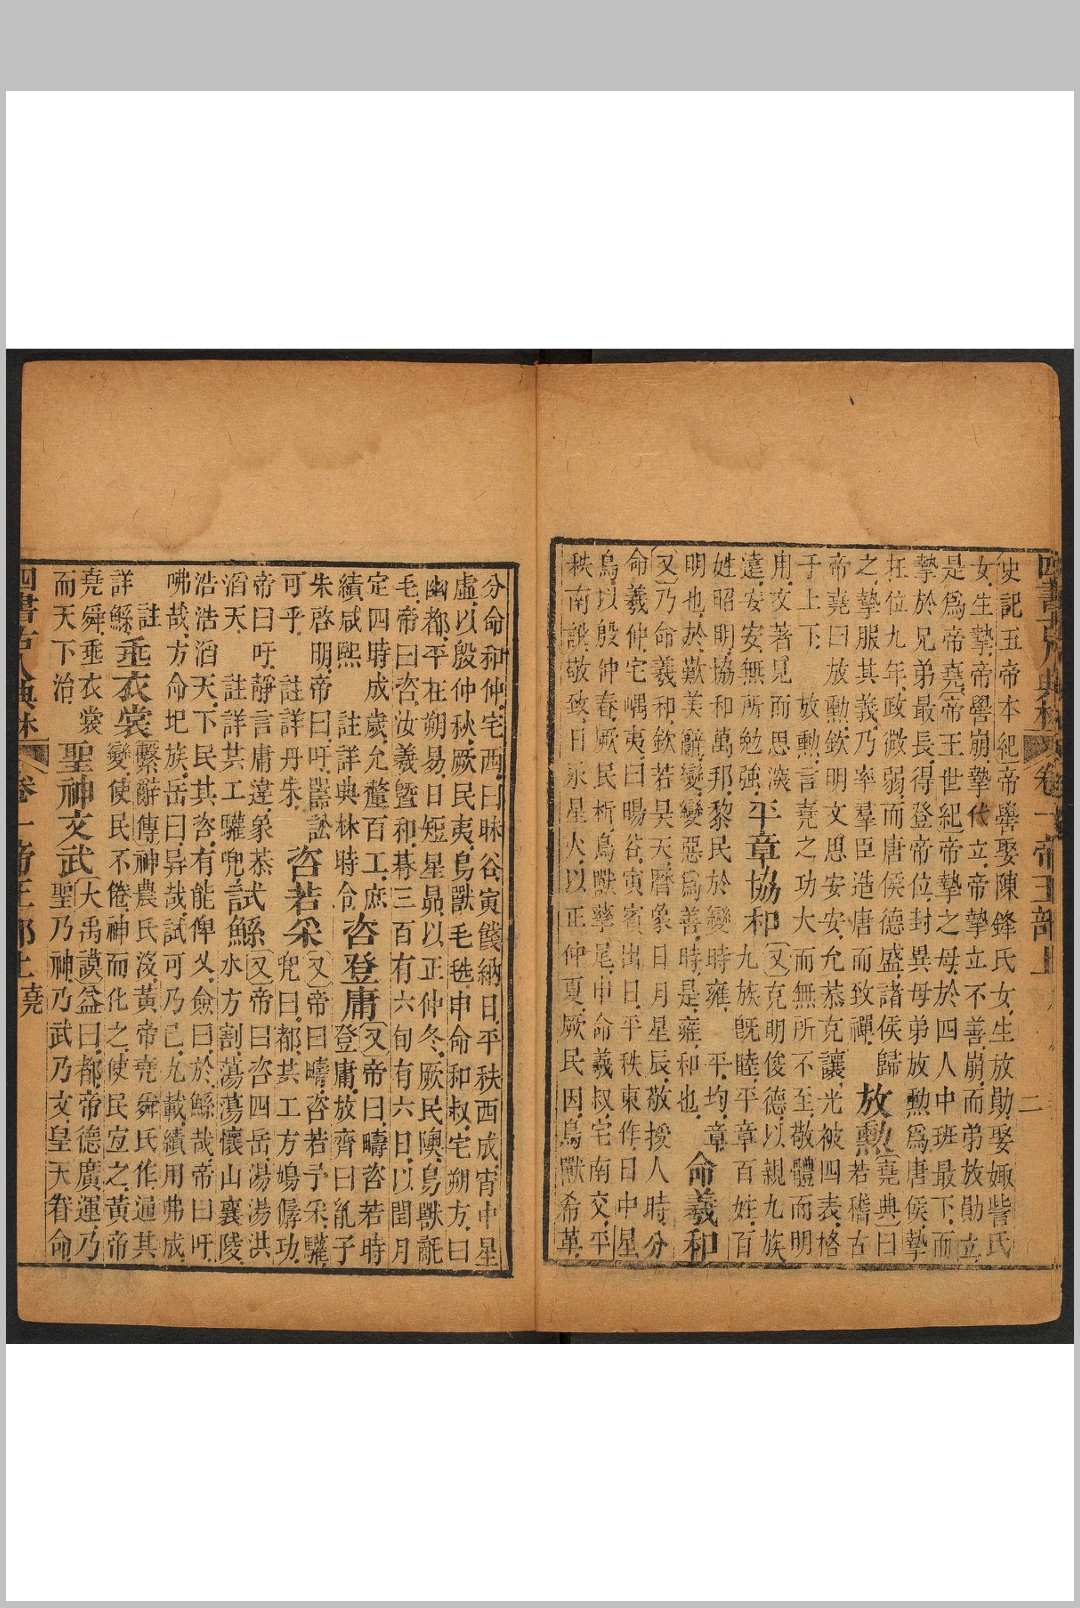 四書古人典林 卷一帝王部上 二
史記五帝本紀帝嚳娶陳鋒氏女生放勛娶娵訾氏
女生摯帝嚳崩摯代立帝摯立不善崩而弟放勛立
是爲帝堯帝王世紀帝摯之母於四人中班最下而
摯於兄弟最長得登帝位封異母弟放勳爲唐侯摯
在位九年政微弱而唐侯德盛諸侯歸
之摯服其義乃率羣臣造唐而致禪 放勲堯典曰若稽古
帝堯曰放勲欽明文思安安允恭克讓光被四表格
于上下 放勲言堯之功大而無所不至敬體而明
用文著見而思深
安安無所勉強 平章協和又克明俊德以親九族
九族既睦平章百姓百
姓昭明協和萬邦黎民於變時雍 平均章
明也於歎美辭變變惡爲善時是雍和也 命羲和
又乃命羲和欽若昊天曆象日月星辰敬授人時分
命羲仲宅嵎夷曰暘谷寅賓出日平秩東作日中星
鳥以殷仲春厥民析鳥獸孳尾申命羲叔宅南交平
秩南譌敬致日永星火以正仲夏厥民因鳥獸希革
分命和仲宅西曰昧谷寅餞納日平秩西成宵中星
虛以殷仲秋厥民夷鳥獸毛毨申命和叔宅朔方曰
幽都平在朔易日短星昴以正仲冬厥民隩鳥獸氄
毛帝曰咨汝羲曁和朞三百有六旬有六日以閏月
定四時成歲允釐百工庶
績咸熙 註詳典林時令 咨登庸又帝曰疇咨若時
登庸放齊曰胤子
朱啓明帝曰吁嚚訟
可乎 註詳丹朱 咨若采又帝曰疇咨若予采驩
兜曰都共工方鳩僝功
帝曰吁靜言庸違象恭
滔天 註詳共工驩兜 試鯀又帝曰咨四岳湯湯洪
水方割蕩蕩懷山襄陵
浩浩滔天下民其咨有能俾乂僉曰於鯀哉帝曰吁
咈哉方命圮族岳曰异哉試可乃已九載績用弗成
註
詳鯀 垂衣裳繫辭傳神農氏沒黃帝堯舜氏作通其
變使民不倦神而化之使民宜之黃帝
堯舜垂衣裳
而天下治 聖神文武大禹謨益曰都帝德廣運乃
聖乃神乃武乃文皇天眷命
四書古人典林 卷一帝王部上 堯